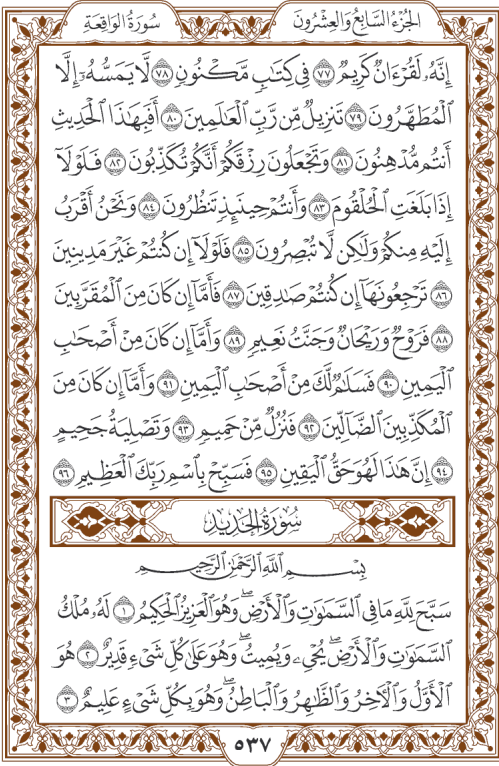 الجُزْءُ السَّابِعُ وَالعِشْرُونَ
سُورَةُ الوَاقِعَةِ
إِنَّهُۥ لَقُرۡءَانٞ كَرِيمٞ ٧٧ فِي كِتَٰبٖ مَّكۡنُونٖ ٧٨ لَّا يَمَسُّهُۥٓ إِلَّا
ٱلۡمُطَهَّرُونَ ٧٩ تَنزِيلٞ مِّن رَّبِّ ٱلۡعَٰلَمِينَ ٨٠ أَفَبِهَٰذَا ٱلۡحَدِيثِ
أَنتُم مُّدۡهِنُونَ ٨١ وَتَجۡعَلُونَ رِزۡقَكُمۡ أَنَّكُمۡ تُكَذِّبُونَ ٨٢ فَلَوۡلَآ
إِذَا بَلَغَتِ ٱلۡحُلۡقُومَ ٨٣ وَأَنتُمۡ حِينَئِذٖ تَنظُرُونَ ٨٤ وَنَحۡنُ أَقۡرَبُ
إِلَيۡهِ مِنكُمۡ وَلَٰكِن لَّا تُبۡصِرُونَ ٨٥ فَلَوۡلَآ إِن كُنتُمۡ غَيۡرَ مَدِينِينَ
٨٦ تَرۡجِعُونَهَآ إِن كُنتُمۡ صَٰدِقِينَ ٨٧ فَأَمَّآ إِن كَانَ مِنَ ٱلۡمُقَرَّبِينَ
٨٨ فَرَوۡحٞ وَرَيۡحَانٞ وَجَنَّتُ نَعِيمٖ ٨٩ وَأَمَّآ إِن كَانَ مِنۡ أَصۡحَٰبِ
ٱلۡيَمِينِ ٩٠ فَسَلَٰمٞ لَّكَ مِنۡ أَصۡحَٰبِ ٱلۡيَمِينِ ٩١ وَأَمَّآ إِن كَانَ مِنَ
ٱلۡمُكَذِّبِينَ ٱلضَّآلِّينَ ٩٢ فَنُزُلٞ مِّنۡ حَمِيمٖ ٩٣ وَتَصۡلِيَةُ جَحِيمٍ
٩٤ إِنَّ هَٰذَا لَهُوَ حَقُّ ٱلۡيَقِينِ ٩٥ فَسَبِّحۡ بِٱسۡمِ رَبِّكَ ٱلۡعَظِيمِ ٩٦
سُورَةُ الحَدِيدِ
بِسۡمِ ٱللَّهِ ٱلرَّحۡمَٰنِ ٱلرَّحِيمِ
سَبَّحَ لِلَّهِ مَا فِي ٱلسَّمَٰوَٰتِ وَٱلۡأَرۡضِۖ وَهُوَ ٱلۡعَزِيزُ ٱلۡحَكِيمُ ١ لَهُۥ مُلۡكُ
ٱلسَّمَٰوَٰتِ وَٱلۡأَرۡضِۖ يُحۡيِۦ وَيُمِيتُۖ وَهُوَ عَلَىٰ كُلِّ شَيۡءٖ قَدِيرٌ ٢ هُوَ
ٱلۡأَوَّلُ وَٱلۡأٓخِرُ وَٱلظَّٰهِرُ وَٱلۡبَاطِنُۖ وَهُوَ بِكُلِّ شَيۡءٍ عَلِيمٌ ٣
٥٣٧